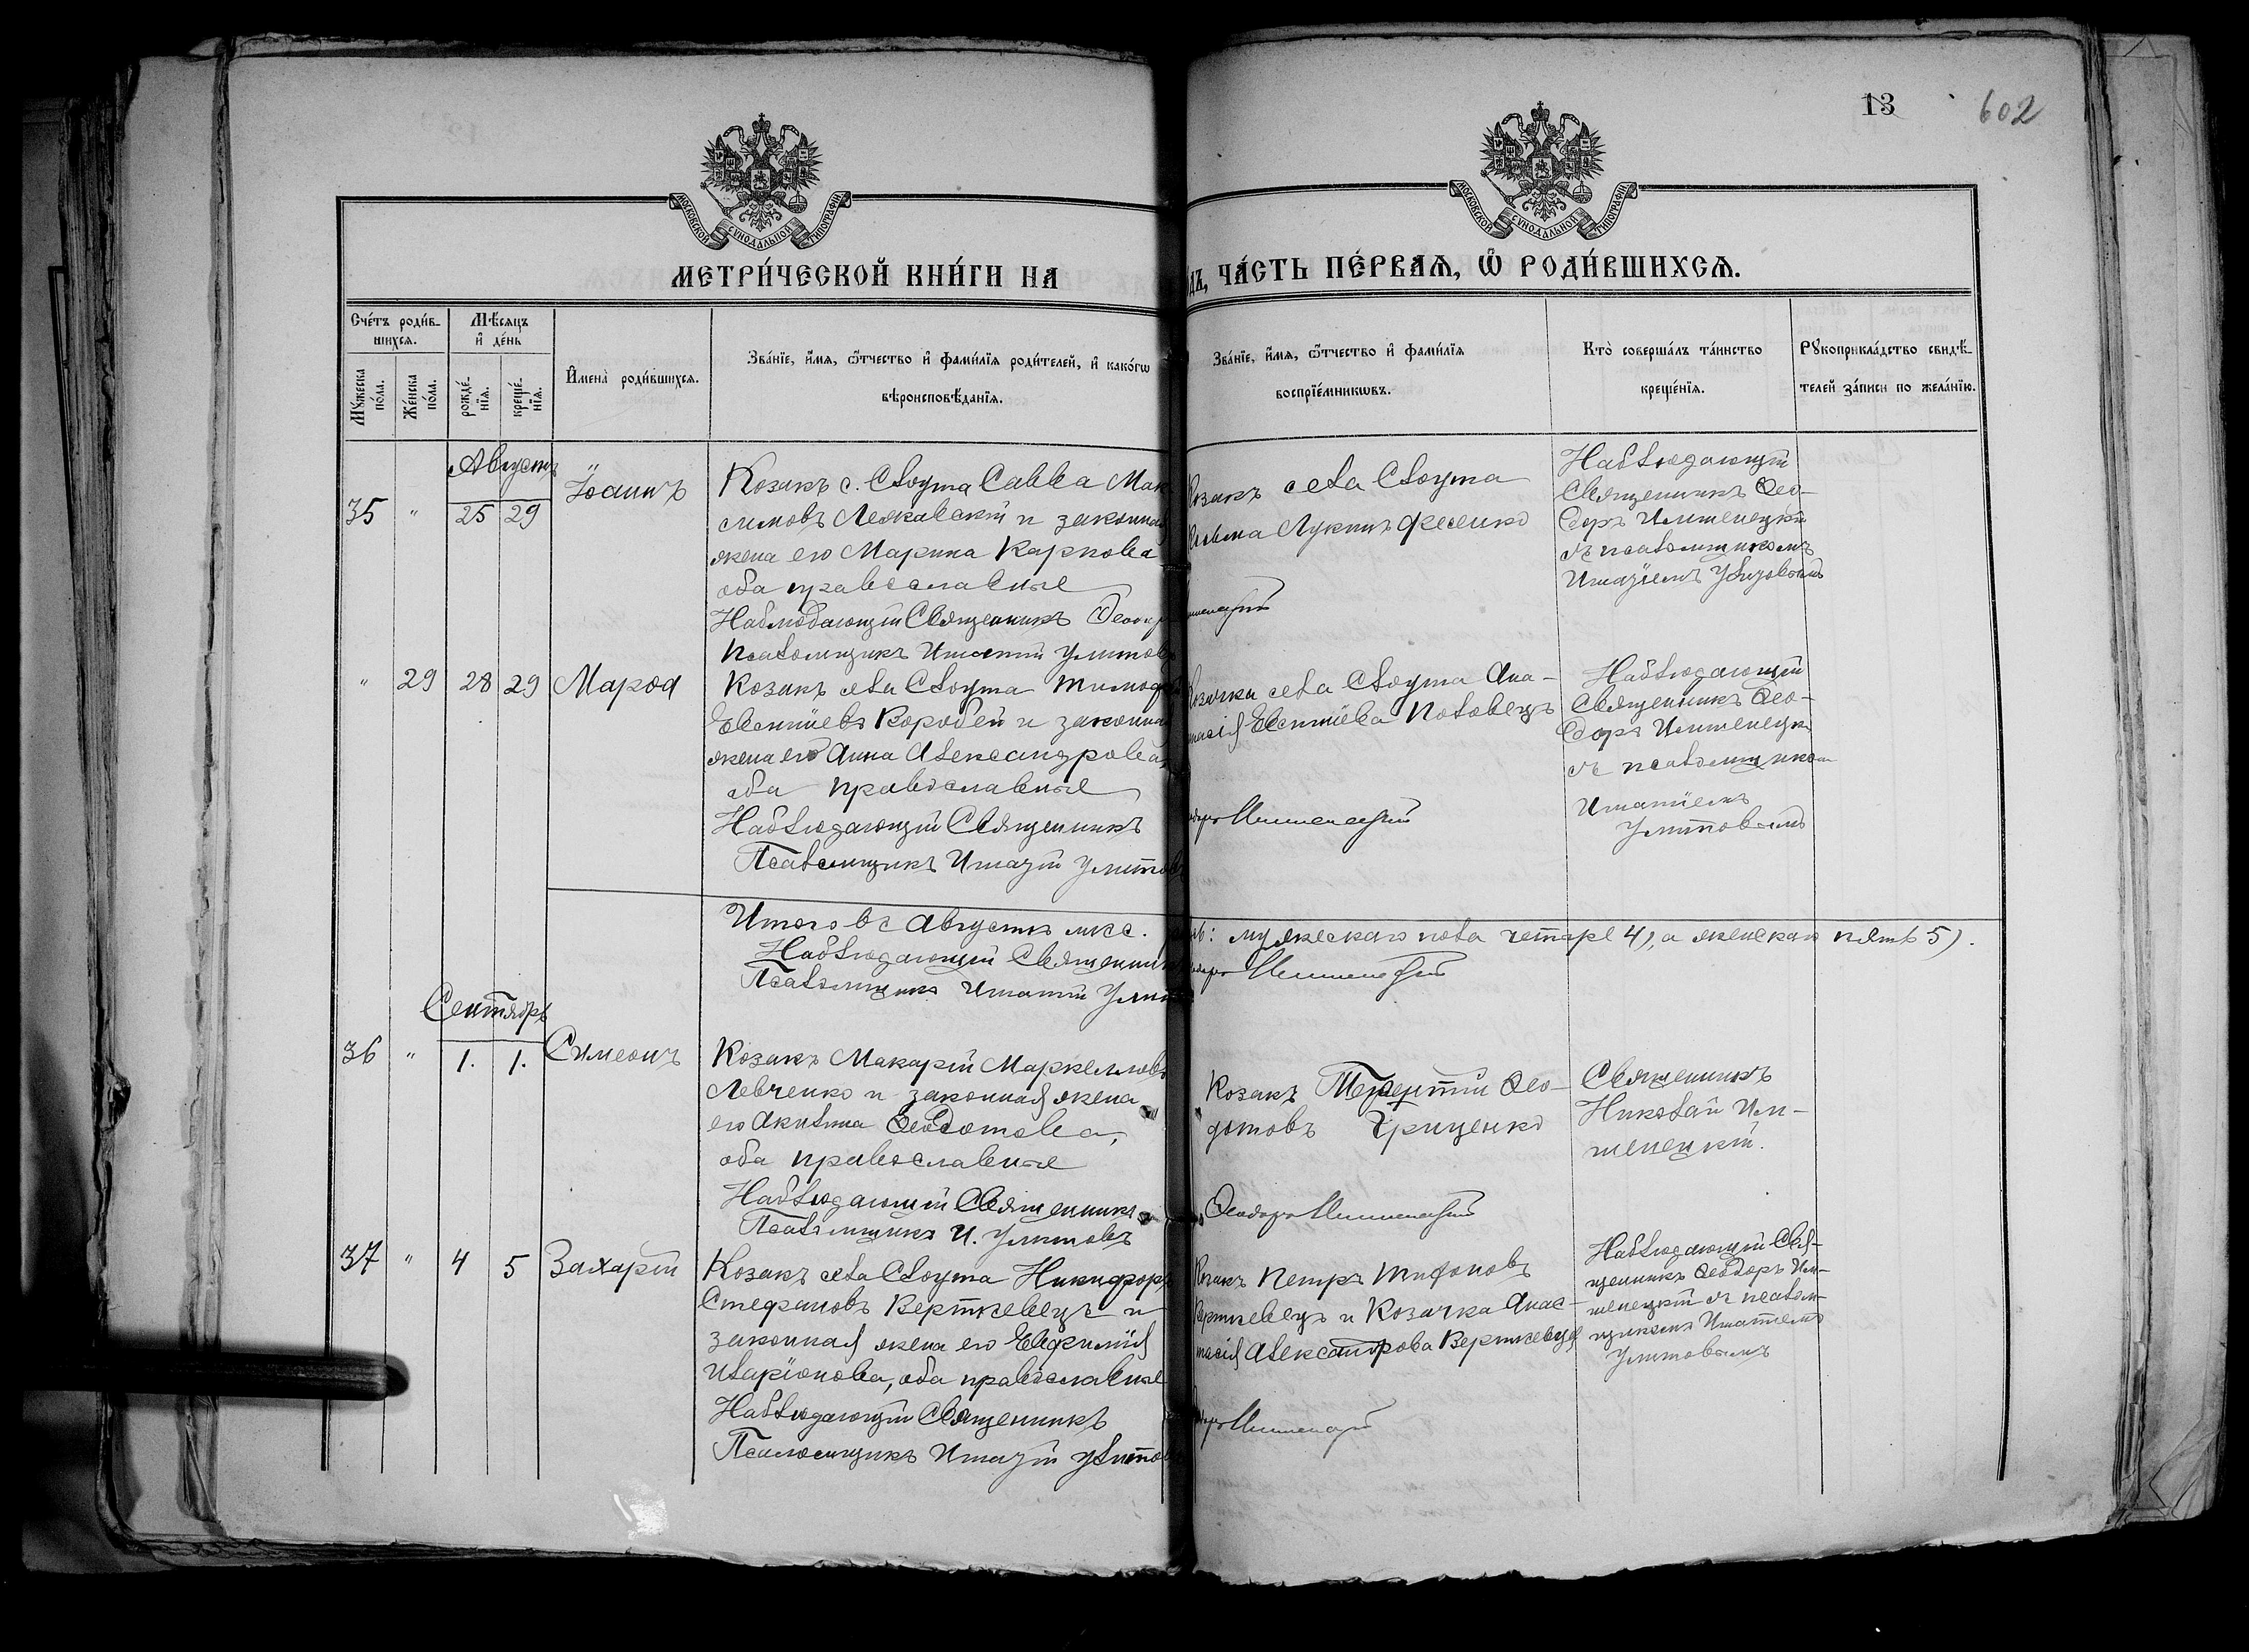 13
602
МОСКОВСКОЙ СѴНОДАЛЬНОЙ ТИПОГРАФІИ
МОСКОВСКОЙ СѴНОДАЛЬНОЙ ТИПОГРАФІИ
МЕТРИ́ЧЕСКОЙ КНИ́ГИ НА
ДЪ, ЧА́СТЬ ПЕ́РВАѦ, Ѡ҆ РОДИ́ВШИХСѦ.
Сче́тъ роди́в-
шихсѧ.
Мꙋ́жеска
по́ла.
Же́нска
по́ла.
Мѣ́сѧцъ
и҆ де́нь
рожде́-
нїѧ.
креще́-
нїѧ.
И҆мена̀ роди́вшихсѧ.
Зва́нїе, и҆́мѧ, ѻ҆́тчество и҆ фами́лїѧ роди́телей, и҆ како́гѡ
вѣроисповѣ́данїѧ.
Зва́нїе, и҆́мѧ, ѻ҆́тчество и҆ фами́лїѧ
воспрїе́мникѡвъ.
Кто̀ соверша́лъ та́инство
креще́нїѧ.
Рꙋкоприкла́дство свидѣ́-
телей за́писи по жела́нїю.
Августъ
35 " 25 29 Іоаннъ
Козакъ с. Слоута Савва Мак
симовъ Лежавскій и законная
жена его Марина Карпова
оба православные
Наблюдающій Священникъ Ѳеодор
Псаломщикъ Игнатій Улитовъ
Козакъ села Слоута
Лукинъ Фесенко
Наблюдающій
Священникъ Ѳео-
доръ Имшенецкій
съ псаломщикомъ
" 29 28 29 Марѳа
Козакъ села Слоута Тимоѳей
Евсентіевъ Коробей и законная
жена его Анна Александрова
оба православные
Наблюдающій Священникъ
Псаломщикъ Игнатій Улитовъ
Козачка села Слоута Ана-
тасія Евсентіева Половецъ
Имшенецкій
Наблюдающій
Священникъ Ѳео-
доръ Имшенецкій
съ псаломщикомъ
Игнатіемъ
Улитовымъ
Итого въ Августѣ мѣс.
мужескаго пола четыре 4), а женскаго пять 5).
Наблюдающій Священникъ
Имшенецкій
Псаломщикъ Игнатій Улит
Сентябрь
36 " 1. 1. Симеонъ
Козакъ Макарій Маркелловъ
Левченко и законная жена
его Акилина Ѳеодотова,
оба православные
Наблюдающій Священникъ
Псаломщикъ И. Улитовъ
Козакъ Терентій Ѳео-
дотовъ Гриценко
Ѳеодоръ Имшенецкій
Священникъ
Николай Им-
шенецкій.
37 " 4 5 Захарій
Козакъ села Слоута Никифоръ
Стефановъ Верткевецъ и
законная жена его Евфимія
Иларіонова, оба православные
Наблюдающій Священникъ
Псаломщикъ Игнатій Улитов
Козакъ Петръ Тифоновъ
Верткевецъ и Козачка Анас-
тасія Александрова Верткевецъ
Имшенецкій
Наблюдающій Свя-
щенникъ Ѳеодоръ Им-
шенецкій съ псалом-
щикомъ Игнатіемъ
Улитовымъ